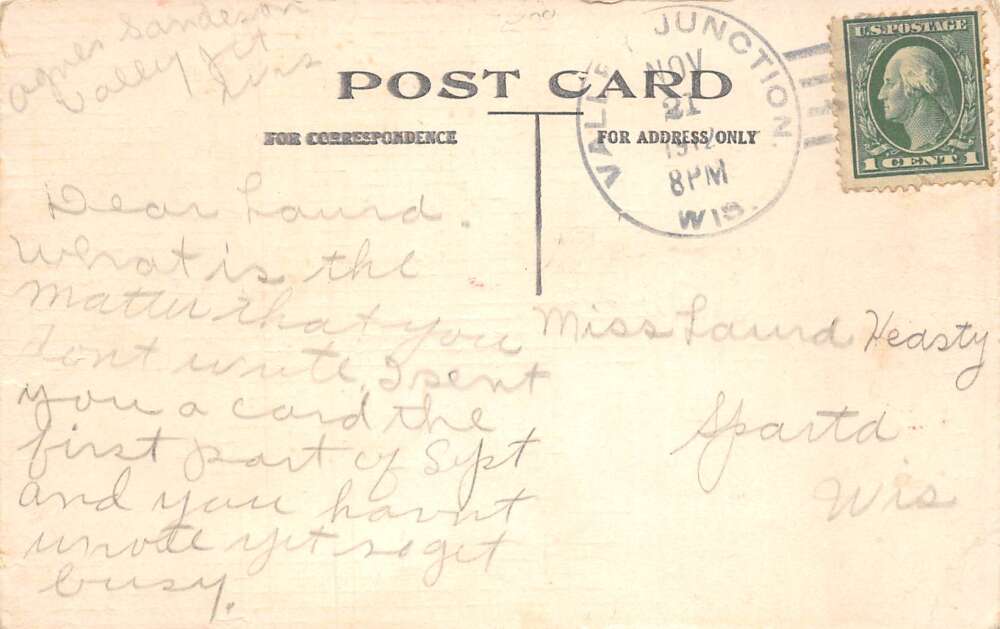 Agnes Sandeson
Valley Jct
Wis
POST CARD
FOR CORRESPONDENCE
FOR ADDRESS ONLY
VALLEY JUNCTION
NOV
21
1912
8PM
WIS.
U.S. POSTAGE
1 CENT 1
Dear Laurd.
What is the
matter that you
dont write. I sent
you a card the
first part of Sept
and you havnt
wrote yet so get
busy.
Miss Laurd Heasty
Sparta
Wis